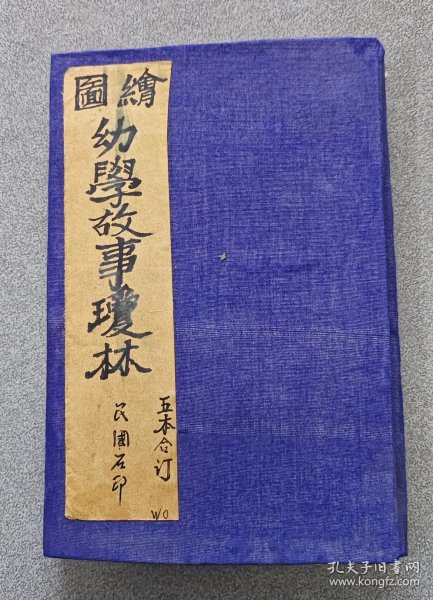 繪圖
幼學故事瓊林
五本合订
民國石印
W0
孔夫子旧书网
www.kongfz.com